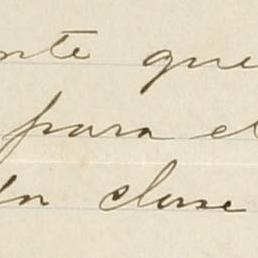 nte que
para el
la clase